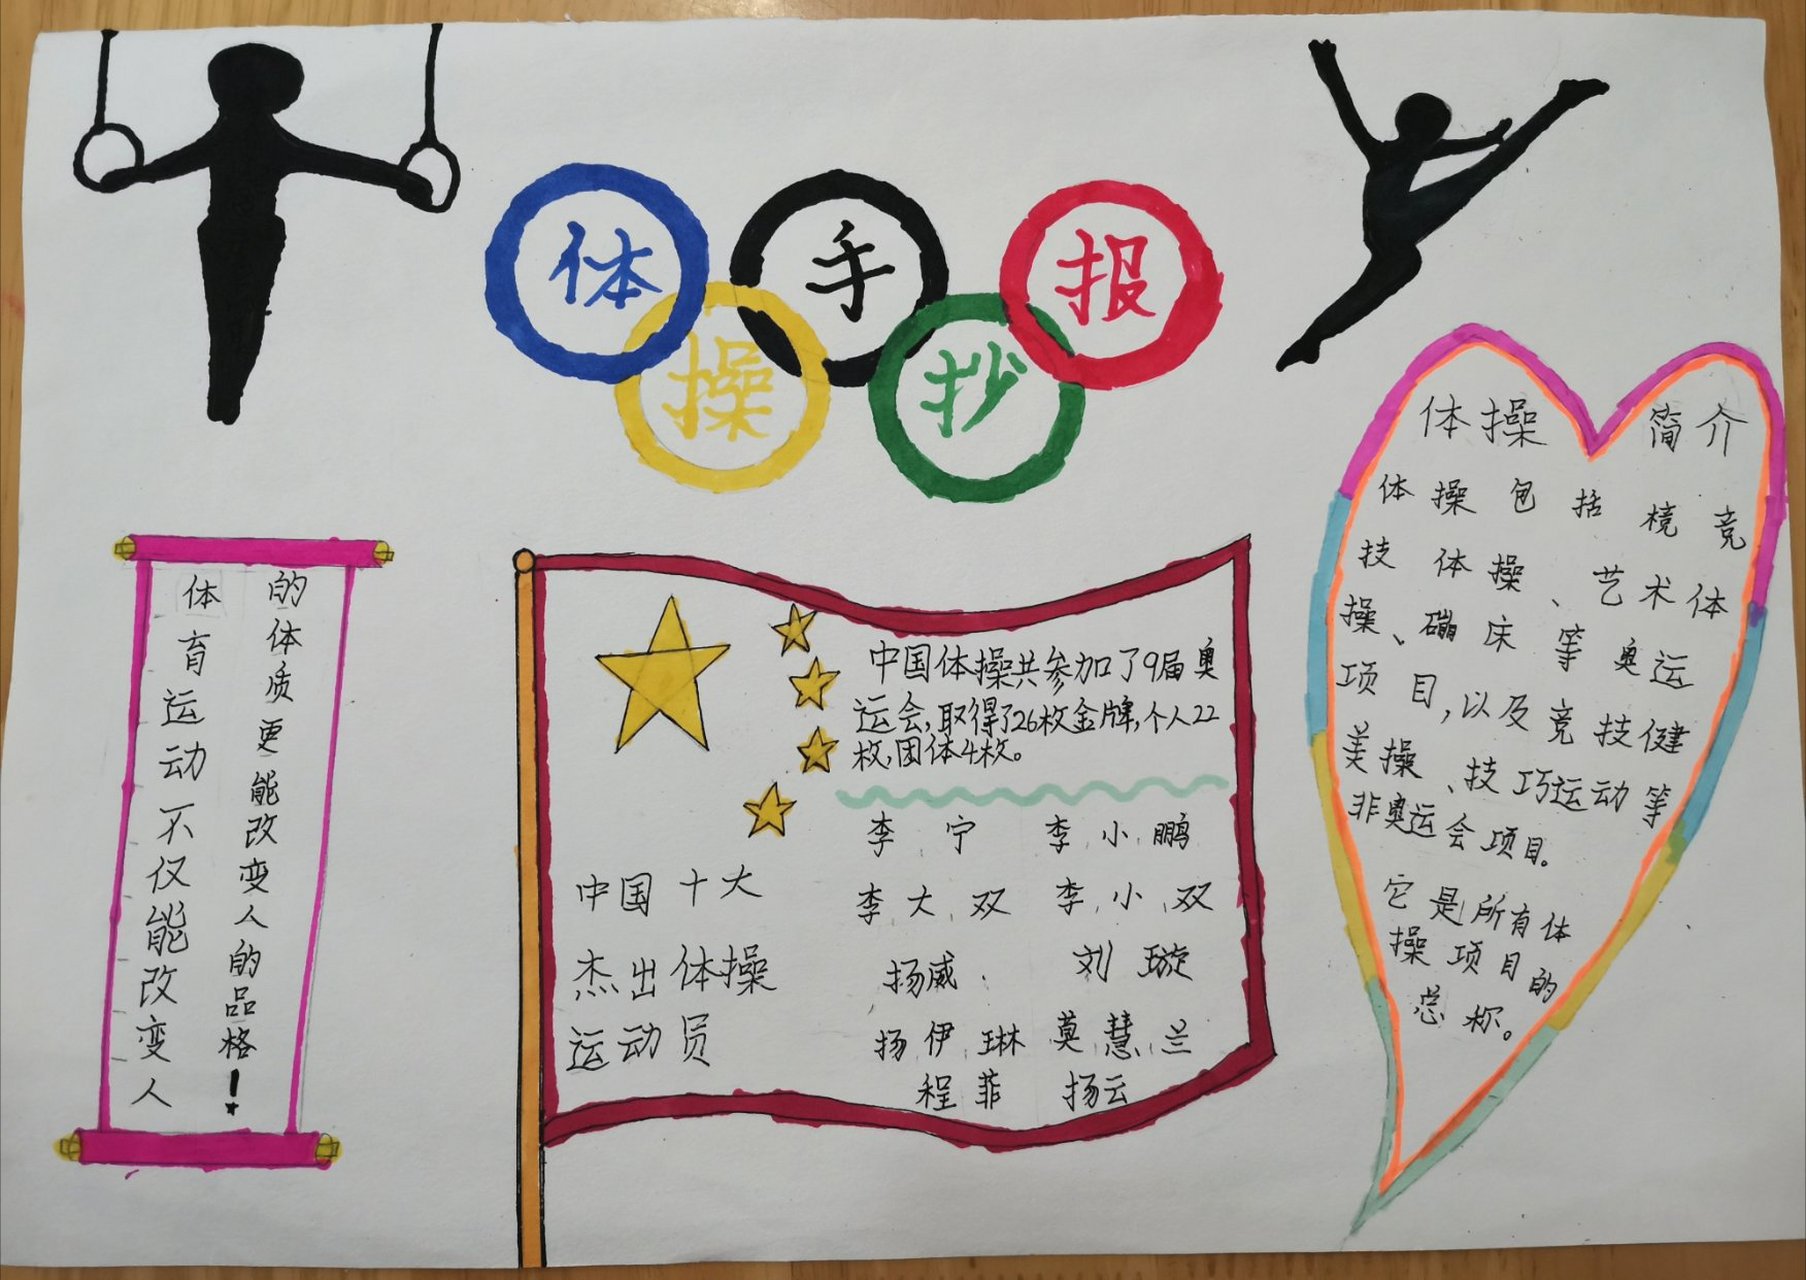 体操手抄报
体育运动不仅能改变人
的体质更能改变人的品格!
中国体操共参加了9届奥
运会,取得了26枚金牌,个人22
枚,团体4枚。
中国十大
杰出体操
运动员
李宁 李小鹏
李大双 李小双
扬威 刘璇
扬伊琳 莫慧兰
程菲 扬云
体操 简介
体操包括竞
技体操、艺术体
操、磞床等奥运
项目,以及竞技健
美操、技巧运动等
非奥运会项目。
它是所有体
操项目的
总称。